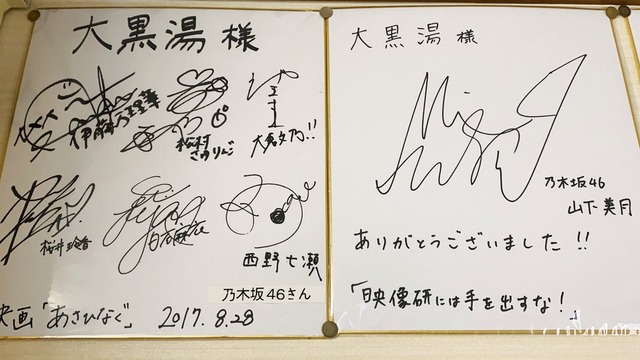 大黒湯様
伊藤万理華
松村
さゆりんご
大倉文乃!!
桜井玲香
白石麻衣
西野七瀬
乃木坂46さん
映画「あさひなぐ」 2017.8.28
大黒湯様
乃木坂46
山下美月
ありがとうございました!!
「映像研には手を出すな!」